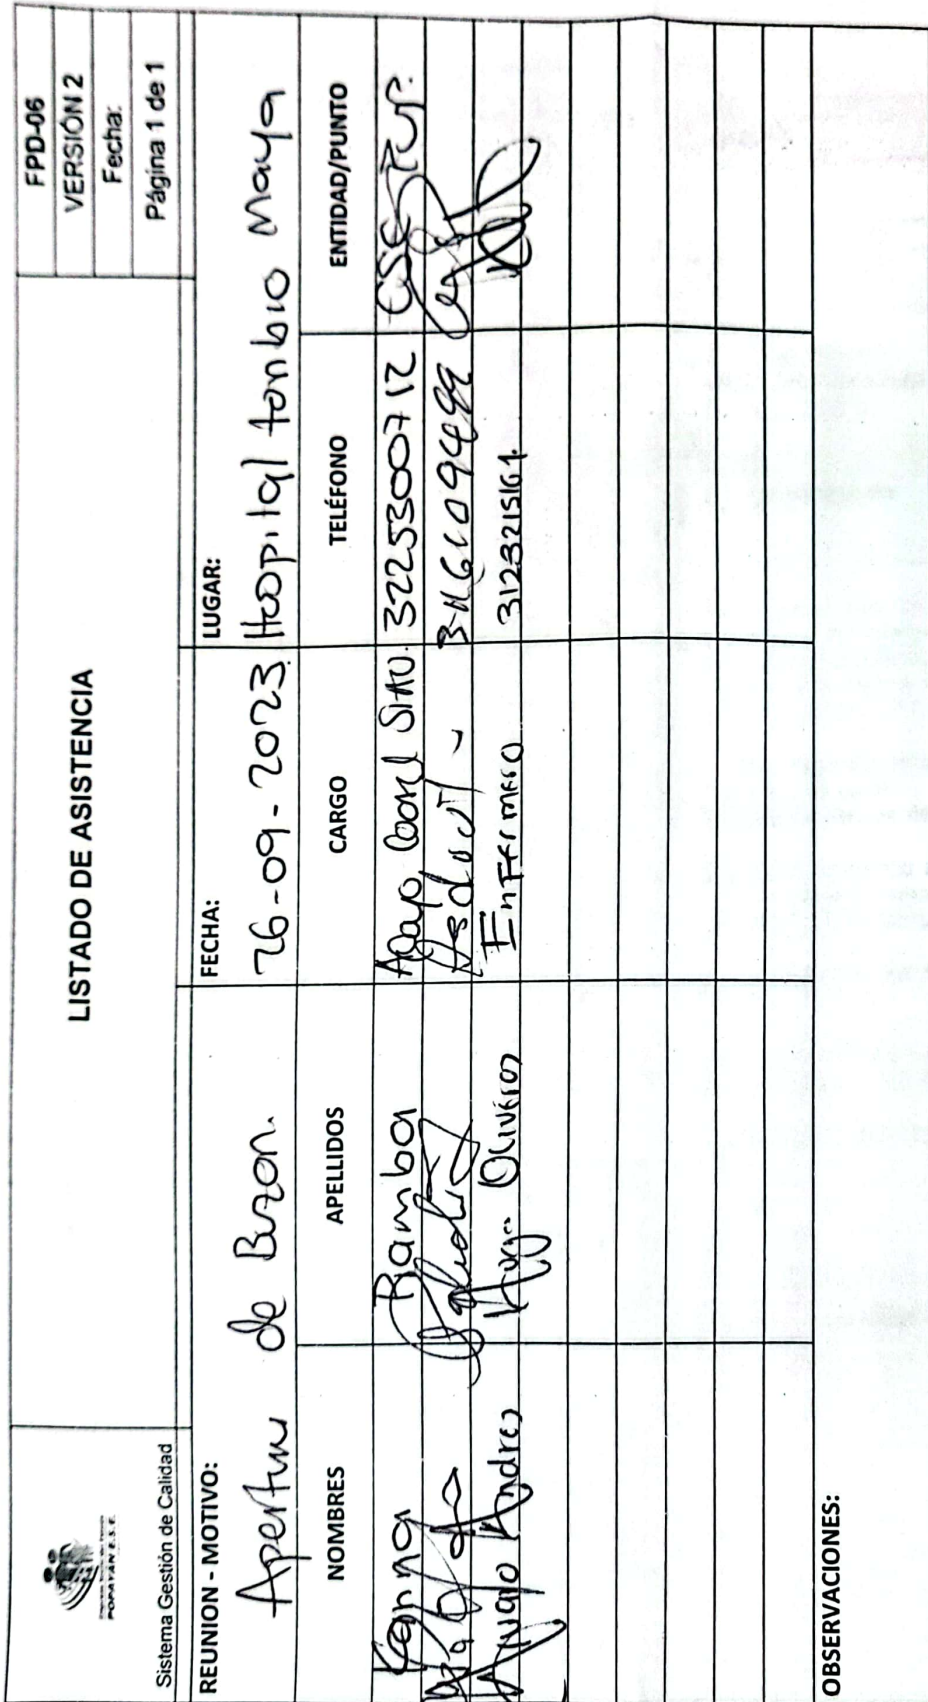 POPAYAN E.S.E.
Sistema Gestión de Calidad
LISTADO DE ASISTENCIA
FPD-06
VERSIÓN 2
Fecha:
Página 1 de 1
REUNION - MOTIVO:
Apertura de Buzon.
FECHA:
26-09-2023
LUGAR:
Hospital tombio Maya
NOMBRES APELLIDOS CARGO TELÉFONO ENTIDAD/PUNTO
Bamba Apoyo SIAU. 3225300712 ESE
Alvaro Andres Oliveros Enfermero 3123215161.
OBSERVACIONES: